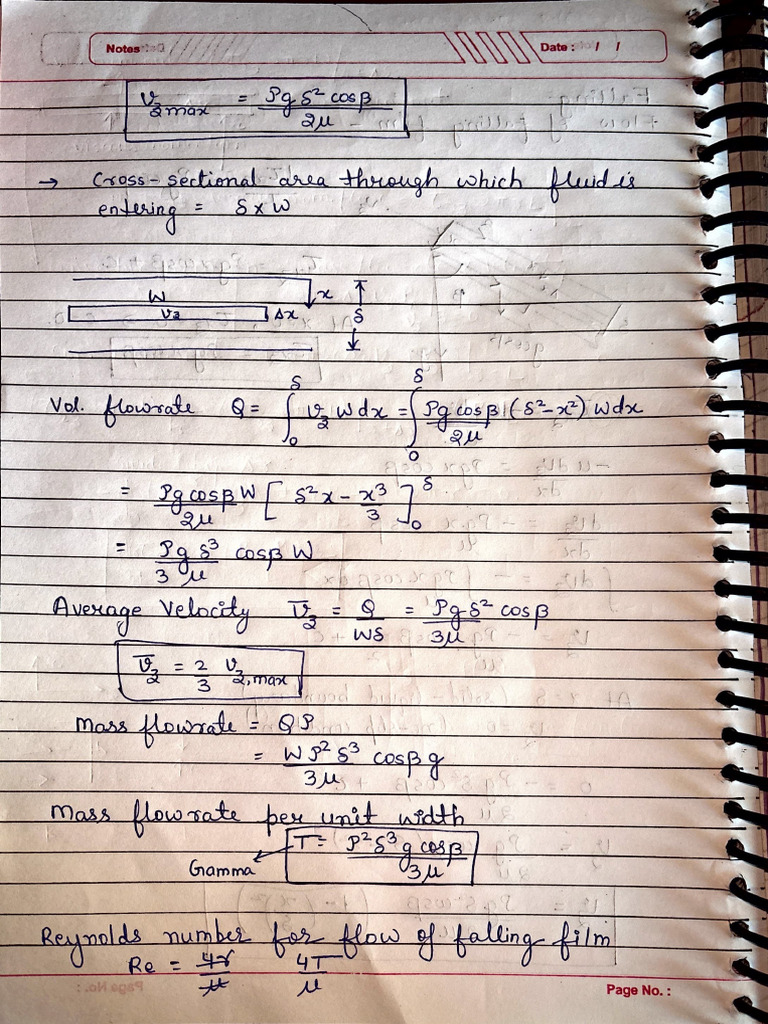 Notes
Date : / /
v_z max = ρg δ² cosβ / 2μ
→ Cross-sectional area through which fluid is
entering = δ x W
W
x
v_z
Δx
δ
Vol. flowrate Q = ∫₀^δ v_z W dx = ∫₀^δ ρg cosβ / 2μ (δ²-x²) W dx
= ρg cosβ W / 2μ [ δ²x - x³/3 ]₀^δ
= ρg δ³ / 3 μ cosβ W
Average Velocity v̅_z = Q / Wδ = ρg δ² cosβ / 3μ
v̅_z = 2/3 v_z,max
Mass flowrate = Qρ
= W ρ² δ³ cosβ g / 3μ
Mass flowrate per unit width
Γ = ρ² δ³ g cosβ / 3μ
Gamma
Reynolds number for flow of falling film
Re = 4r / μ 4Γ / μ
Page No. :